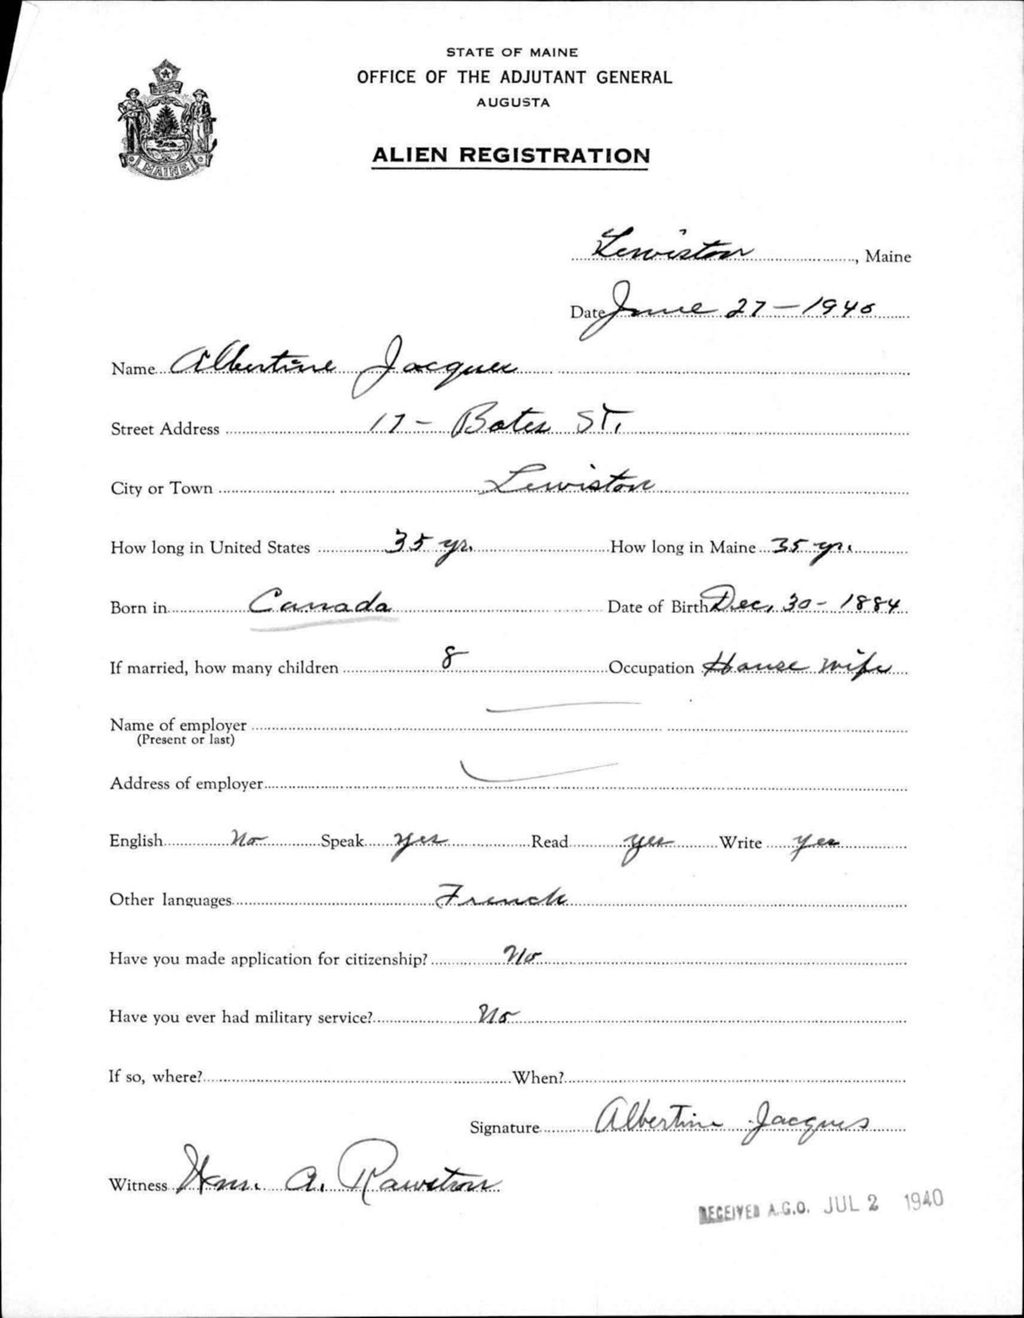 STATE OF MAINE
OFFICE OF THE ADJUTANT GENERAL
AUGUSTA
ALIEN REGISTRATION
MAINE
Lewiston, Maine
Date June 27-1940
Name Albertine Jacques
Street Address 17- Bates St.
City or Town Lewiston
How long in United States 35 yr. How long in Maine 35 yr.
Born in Canada Date of Birth Dec. 30- 1884
If married, how many children 8 Occupation House wife
Name of employer
(Present or last)
Address of employer
English No Speak yes Read yes Write yes
Other languages French
Have you made application for citizenship? No
Have you ever had military service? No
If so, where? When?
Signature Albertine Jacques
Witness Wm. A. Rawstron
RECEIVED A.G.O. JUL 2 1940